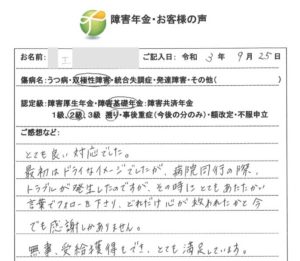 障害年金・お客様の声
お名前: I. ご記入日: 令和 3年 9月 25日
傷病名:うつ病・双極性障害・統合失調症・発達障害・その他( )
認定級:障害厚生年金・障害基礎年金・障害共済年金
1級、2級、3級 遡り・事後重症(今後の分のみ)・額改定・不服申立
ご感想など:
とても良い対応でした。
最初はドライなイメージでしたが、病院同行の際、
トラブルが発生したのですが、その時にとてもあたたかい
言葉でフォロー下さり、どれだけ心が救われたかと今
でも感謝しかありません。
無事、受給獲得もでき、とても満足しています。